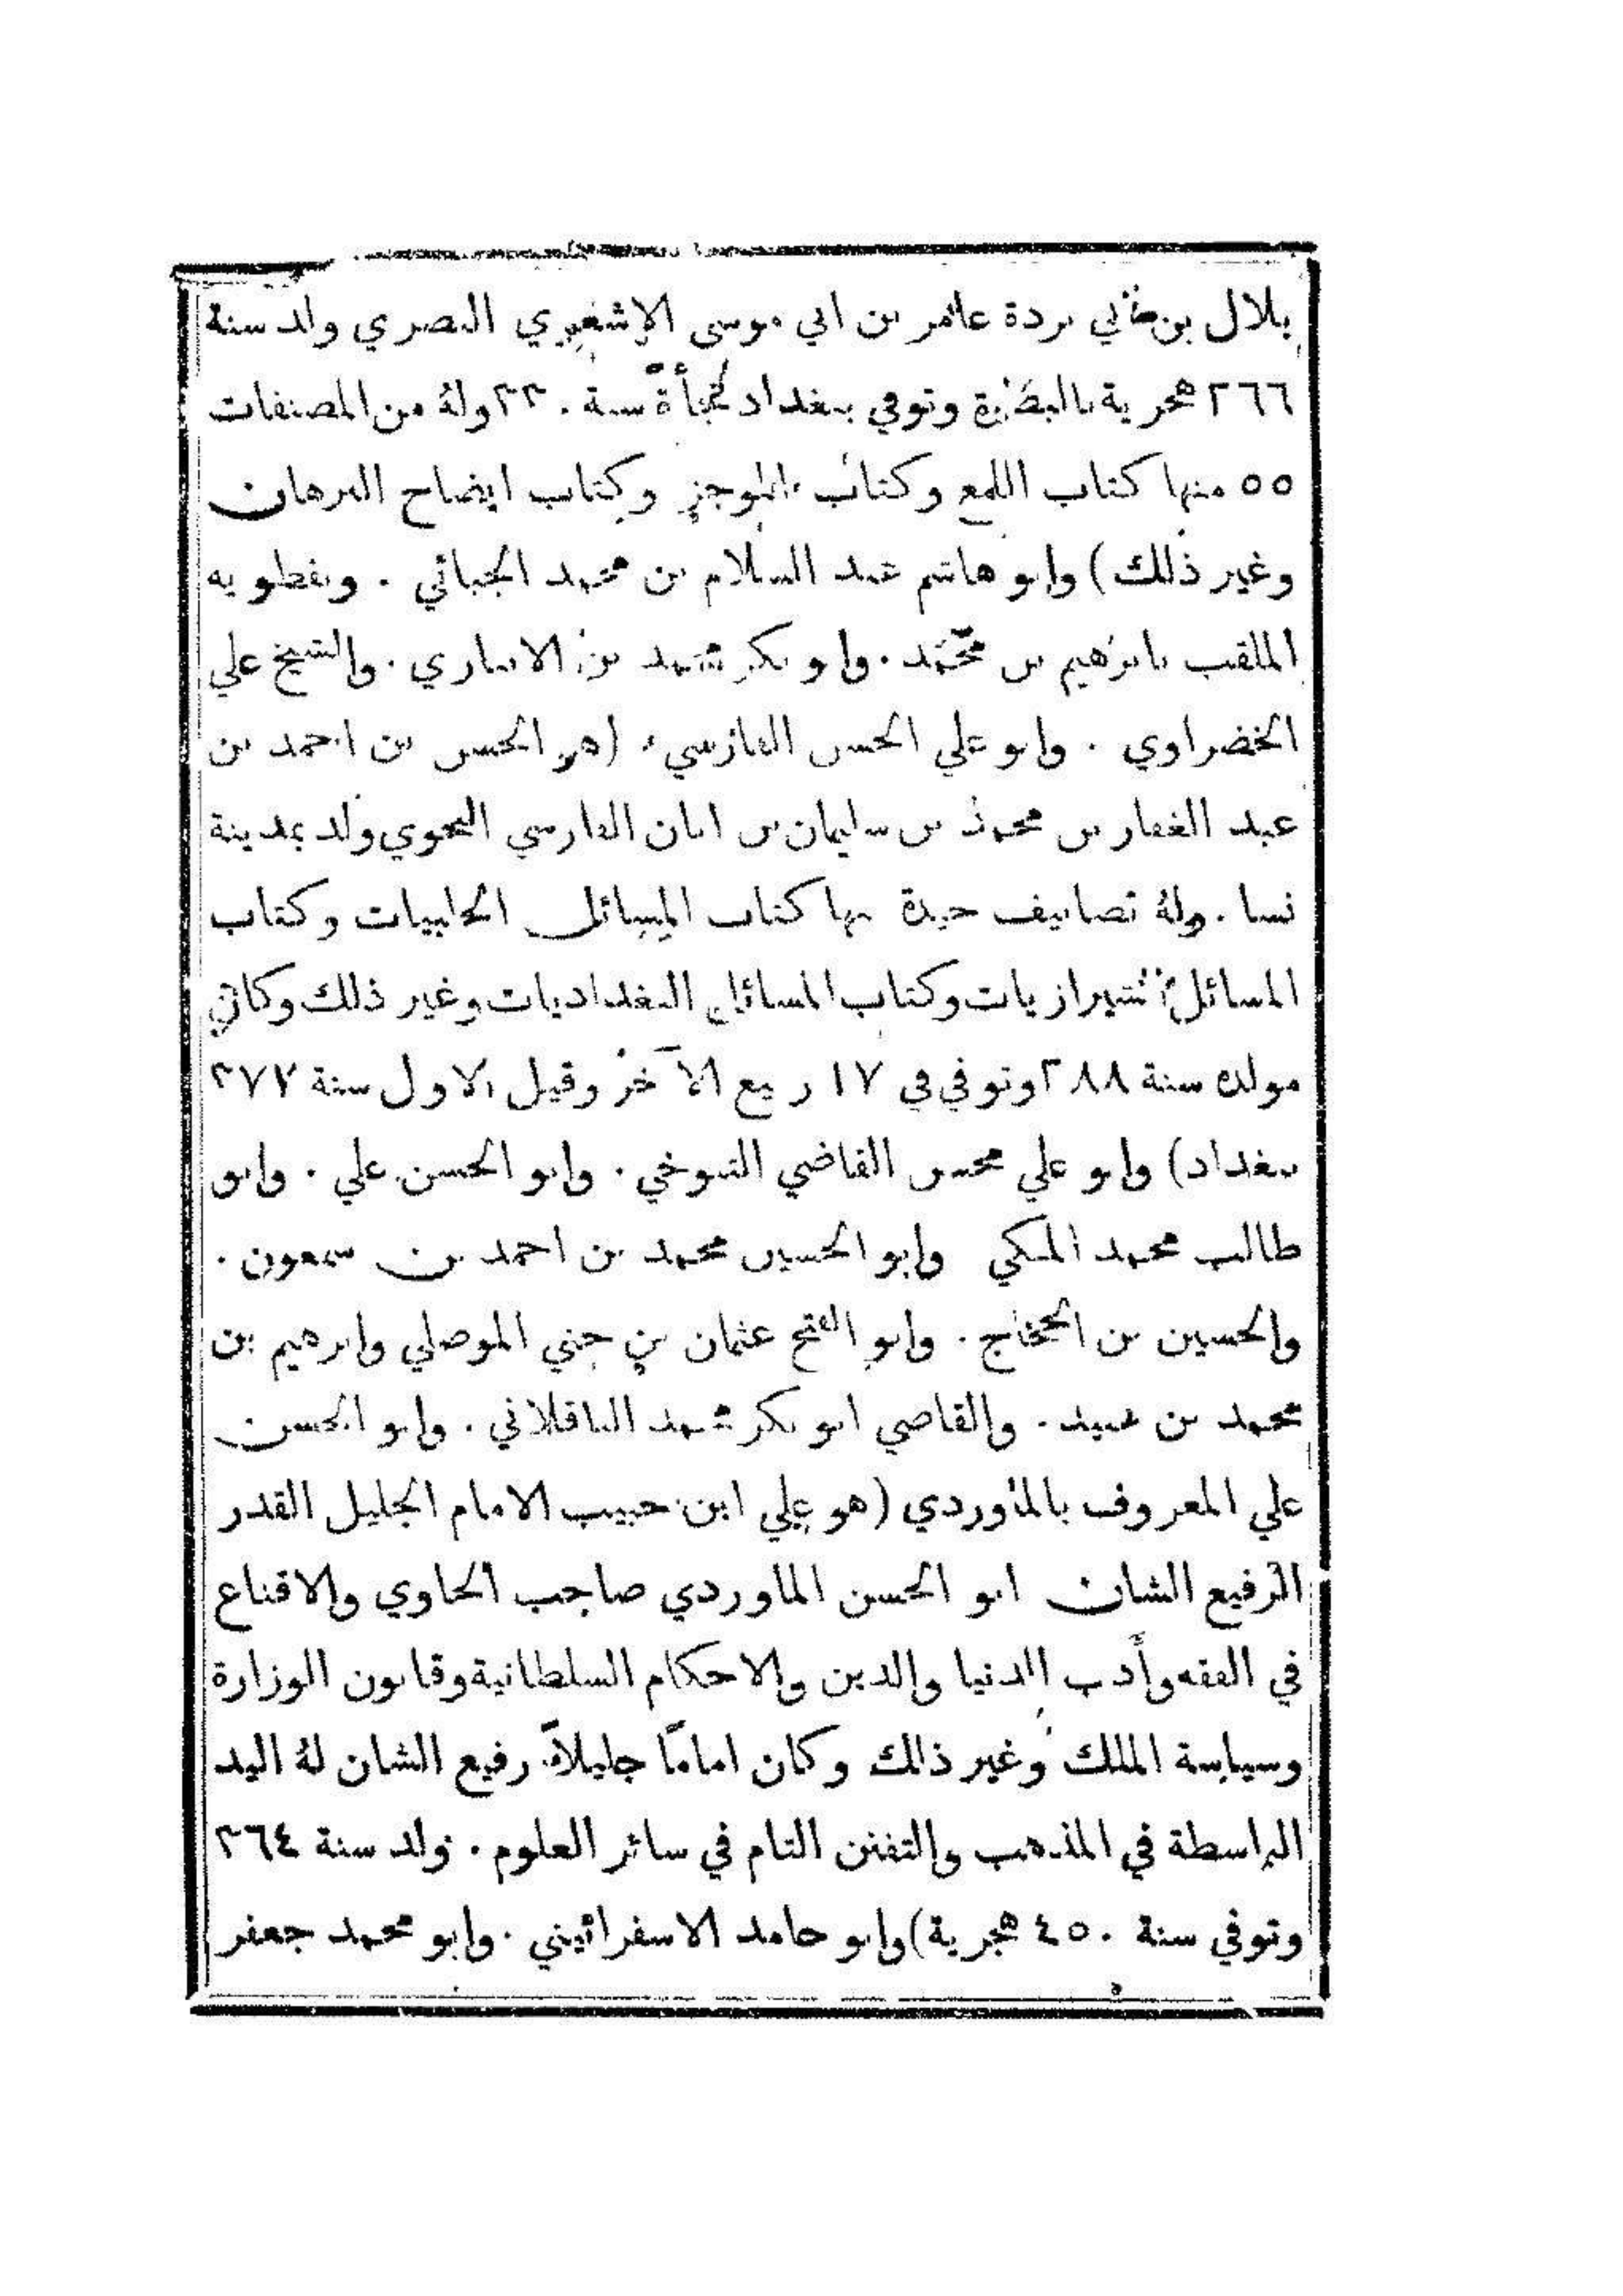 بلال بن ابي بردة عامر بن ابي موسى الاشعري البصري ولد سنة
٢٦٦ هجرية بالبصرة وتوفي ببغداد فجأة سنة ٣٣٠ وله من المصنفات
٥٥ منها كتاب اللمع وكتاب الموجز وكتاب ايضاح البرهان
وغير ذلك) وابو هاشم عبد السلام بن محمد الجبائي . ونفطويه
الملقب بابرهيم بن محمد . وابو بكر محمد بن الانباري . والشيخ علي
الخضراوي . وابو علي الحسن الفارسي (هو الحسن بن احمد بن
عبد الغفار بن محمد بن سليمان بن ابان الفارسي النحوي ولد بمدينة
نسا . وله تصانيف جيدة منها كتاب المسائل الحلبيات وكتاب
المسائل الشيرازيات وكتاب المسائل البغداديات وغير ذلك وكان
مولده سنة ٢٨٨ وتوفي في ١٧ ربيع الآخر وقيل الاول سنة ٣٧٧
ببغداد) وابو علي محسن القاضي التنوخي . وابو الحسن علي . وابو
طالب محمد المكي وابو الحسين محمد بن احمد بن سمعون .
والحسين بن الحجاج . وابو الفتح عثمان بن جني الموصلي وابرهيم بن
محمد بن عبيد . والقاضي ابو بكر محمد الباقلاني . وابو الحسن
علي المعروف بالماوردي (هو علي ابن حبيب الامام الجليل القدر
الرفيع الشان ابو الحسن الماوردي صاحب الحاوي والاقناع
في الفقه وأدب الدنيا والدين والاحكام السلطانية وقانون الوزارة
وسياسة الملك وغير ذلك وكان اماماً جليلاً رفيع الشان لهُ اليد
الباسطة في المذهب والتفنن التام في سائر العلوم . ولد سنة ٣٦٤
وتوفي سنة ٤٥٠ هجرية) وابو حامد الاسفرائيني . وابو محمد جعفر